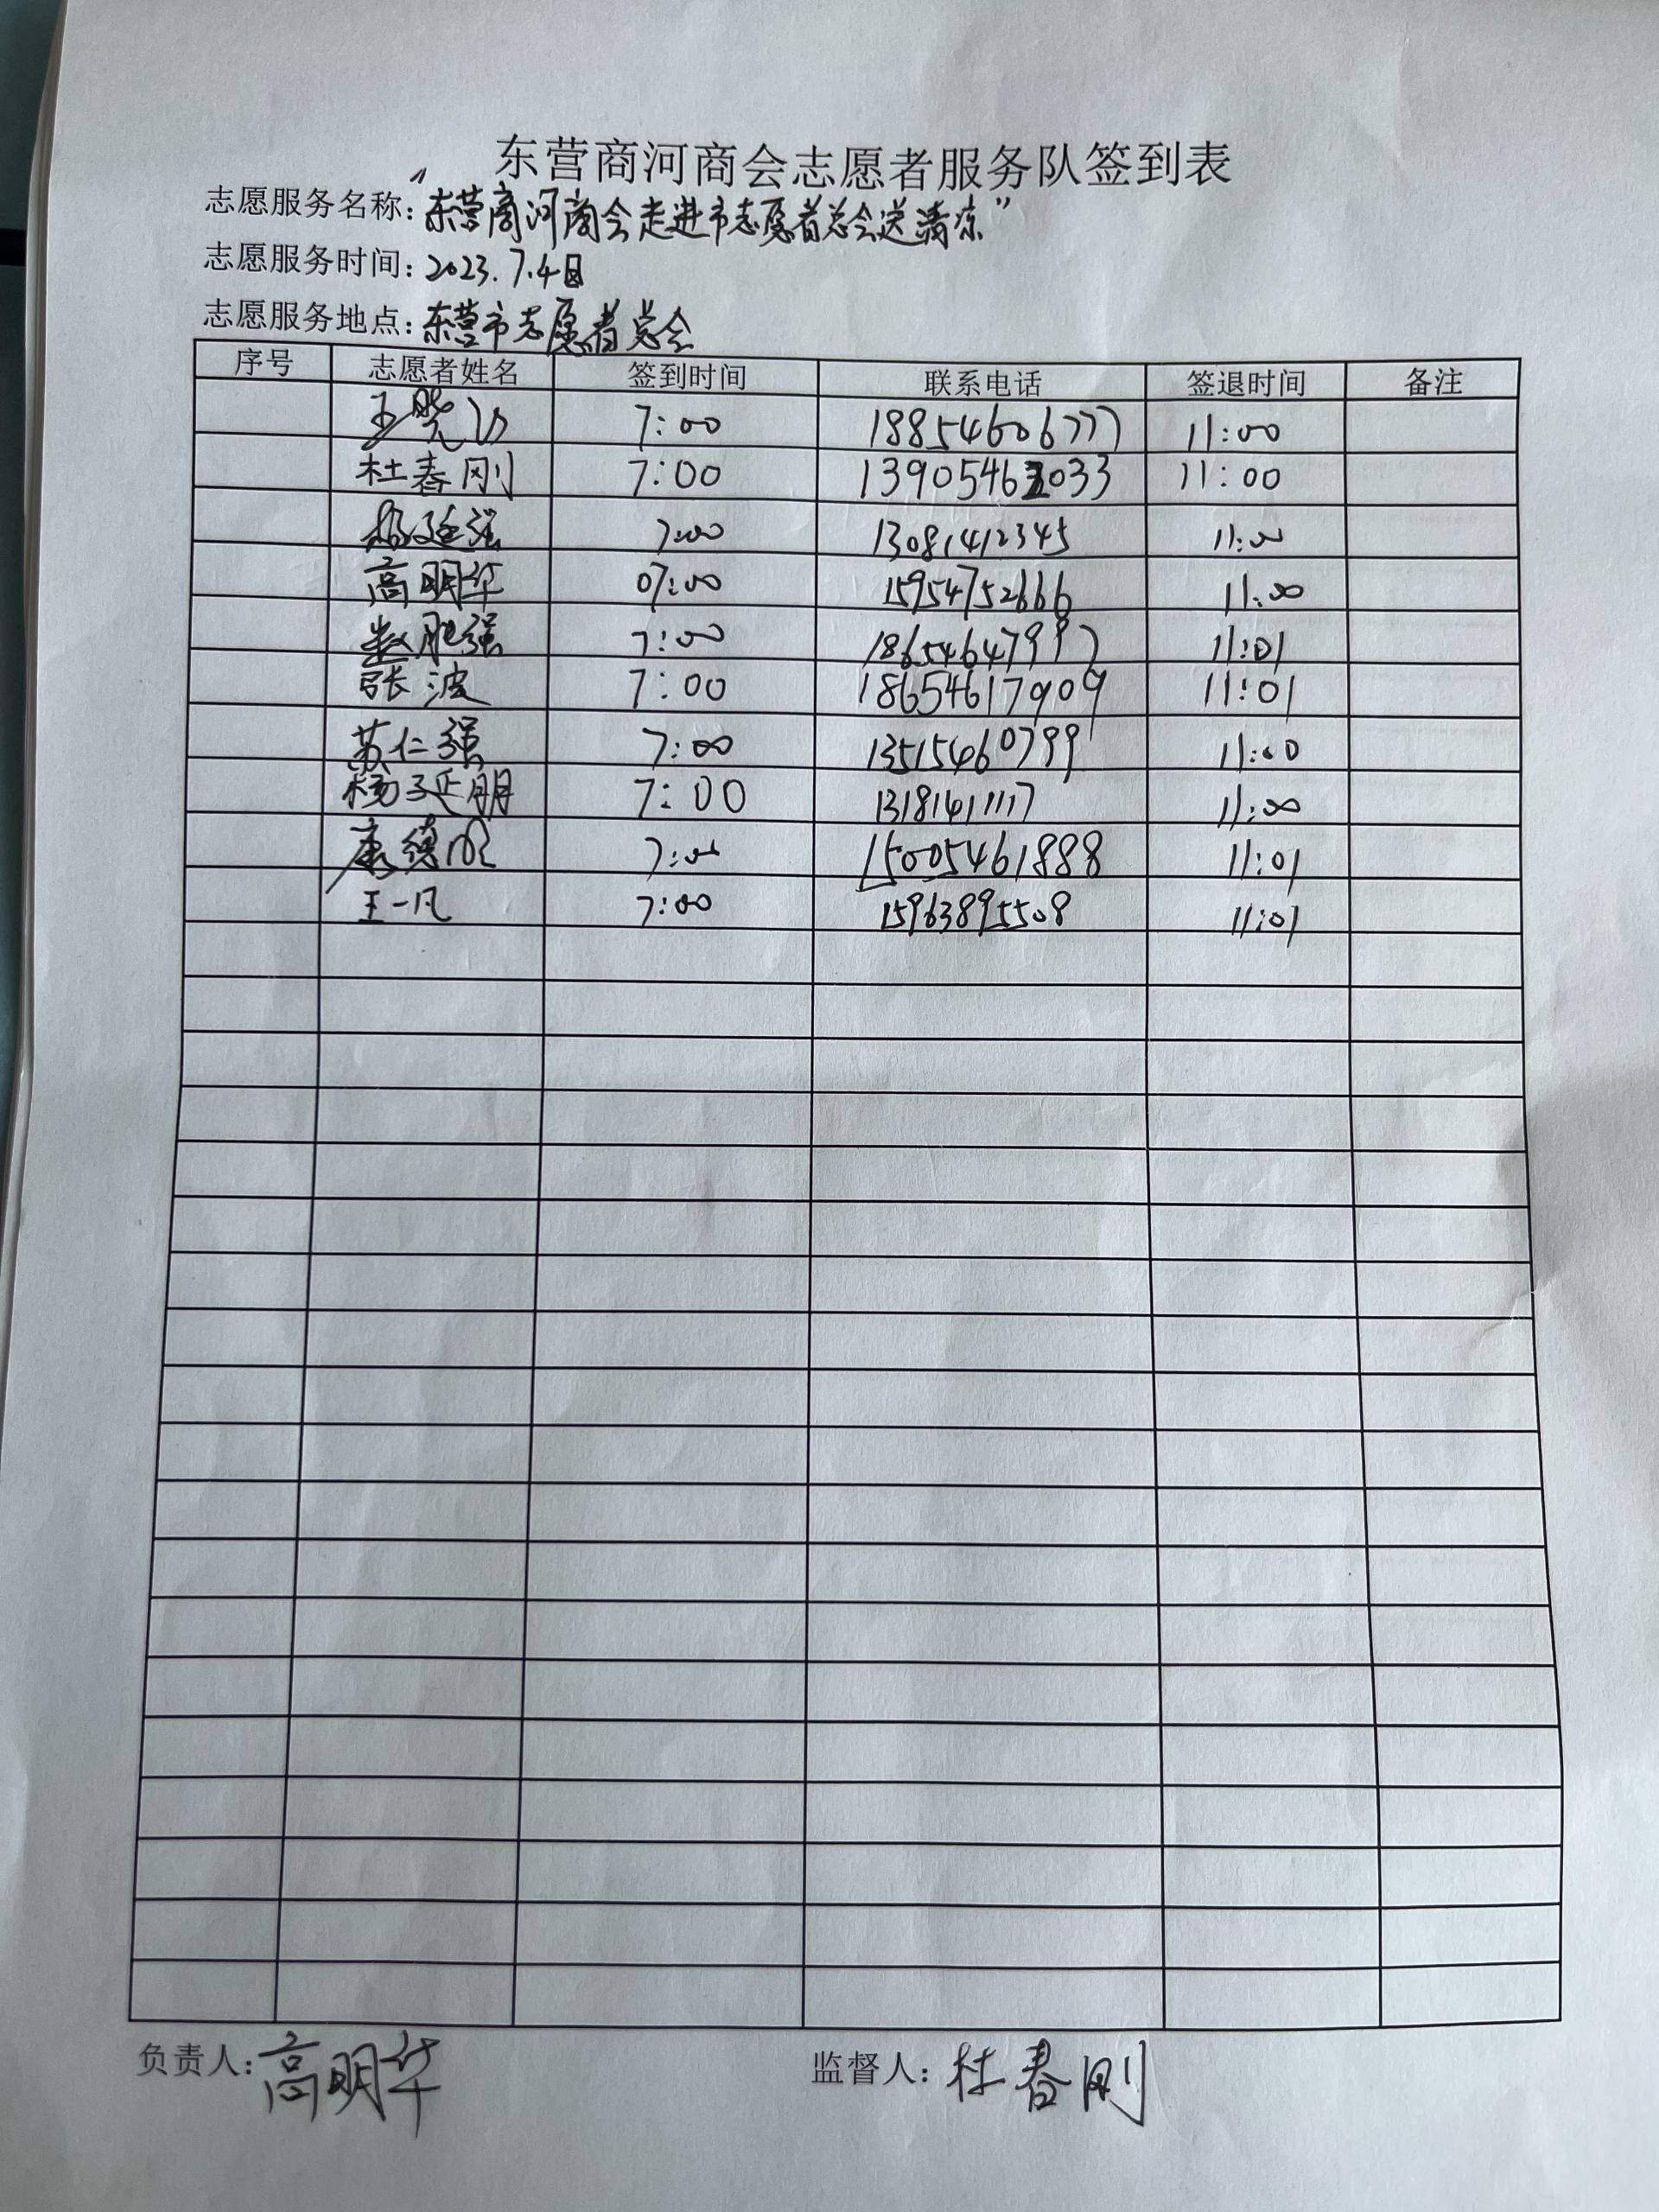 东营商河商会志愿者服务队签到表
志愿服务名称：“东营商河商会走进市志愿者总会送清凉”
志愿服务时间：2023.7.4日
志愿服务地点：东营市志愿者总会
序号 志愿者姓名 签到时间 联系电话 签退时间 备注
王晓 7:00 18854606777 11:00
杜春刚 7:00 13905463033 11:00
杨廷强 7:00 13081412345 11:00
高明华 07:00 15954752666 11:00
赵胜强 7:00 18654647997 11:01
张波 7:00 18654617909 11:01
苏仁强 7:00 13515460799 11:00
杨廷朋 7:00 13181411117 11:00
康德 7:00 15005461888 11:01
王一凡 7:00 15963895508 11:01
负责人：高明华 监督人：杜春刚